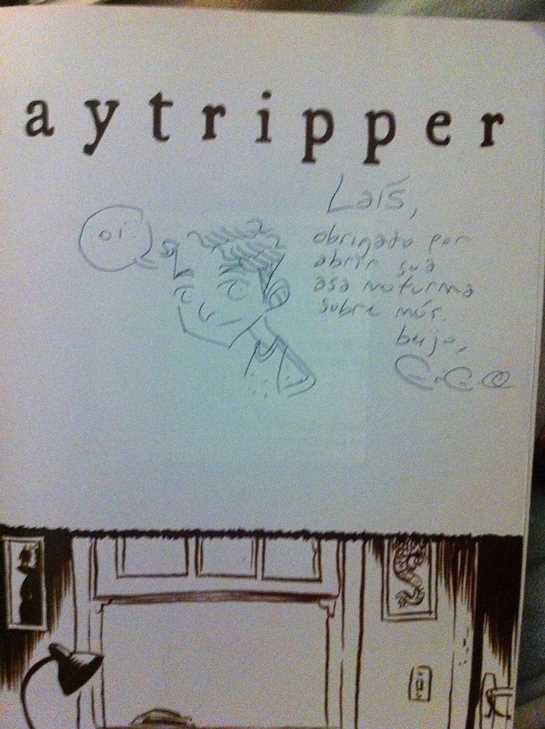 aytripper
Laís,
oi
obrigado por
abrir sua
asa noturna
sobre nós.
beijo,